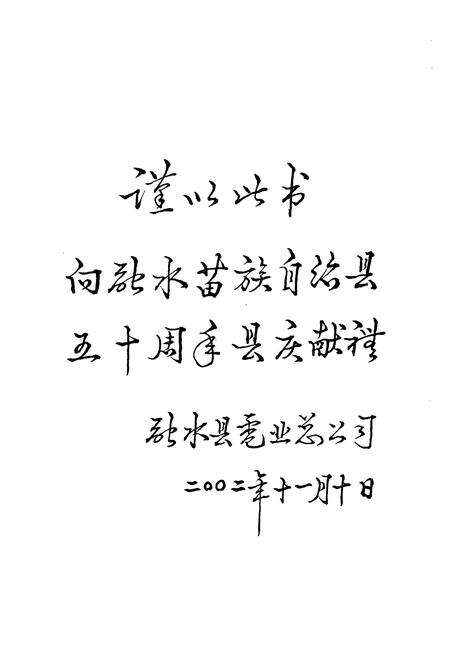 谨以此书
向融水苗族自治县
五十周年县庆献礼
融水县电业总公司
二〇〇二年十一月十日